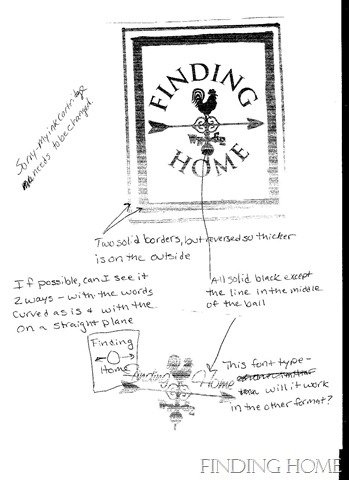 Sorry - my ink cartridge
needs to be changed.
FINDING
HOME
Two solid borders, but reversed so thicker
is on the outside
If possible, can I see it
2 ways - with the words
curved as is & with the
on a straight plane
All solid black except
the line in the middle
of the ball
Finding
Home
Finding Home
This font type -
will it work
in the other format?
FINDING HOME